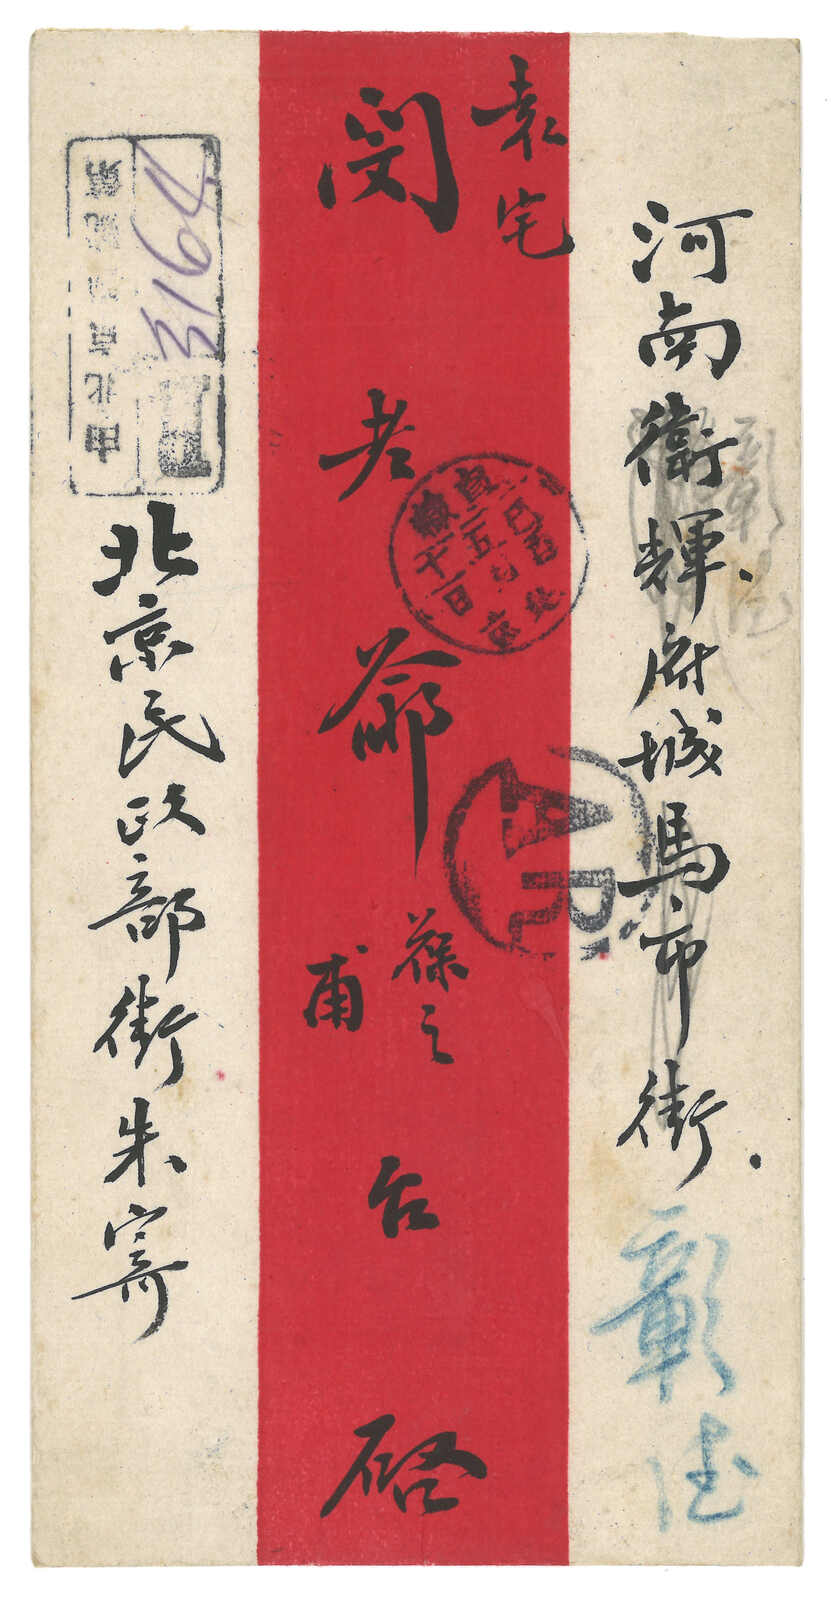 河南衛輝府城馬市街
彰德
彰德
袁宅
閔老爺葆之甫台啓
北京民政部街朱寄
3164
AR